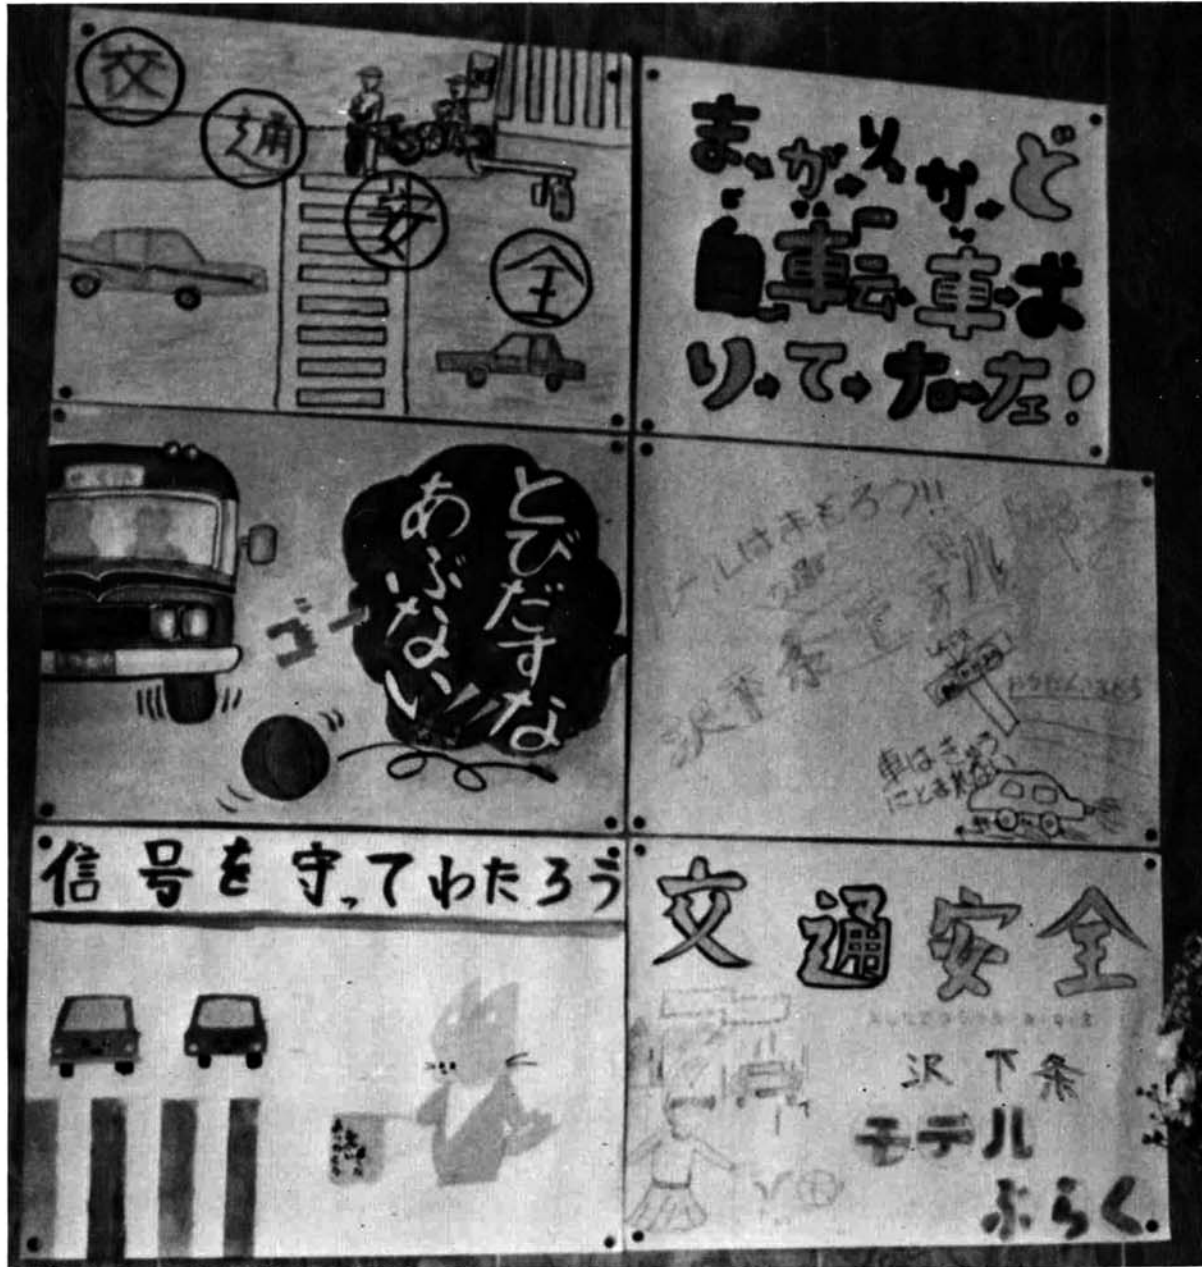 交通安全
まがりかど
自転車お
りてナローナェ!
とびだすな
あぶない!!
ゴー
ルールはまもろう!!
沢下条モデル
車はきゅう
にとまれない
信号を守ってわたろう
交通安全
沢下条
モデル
ぶらく